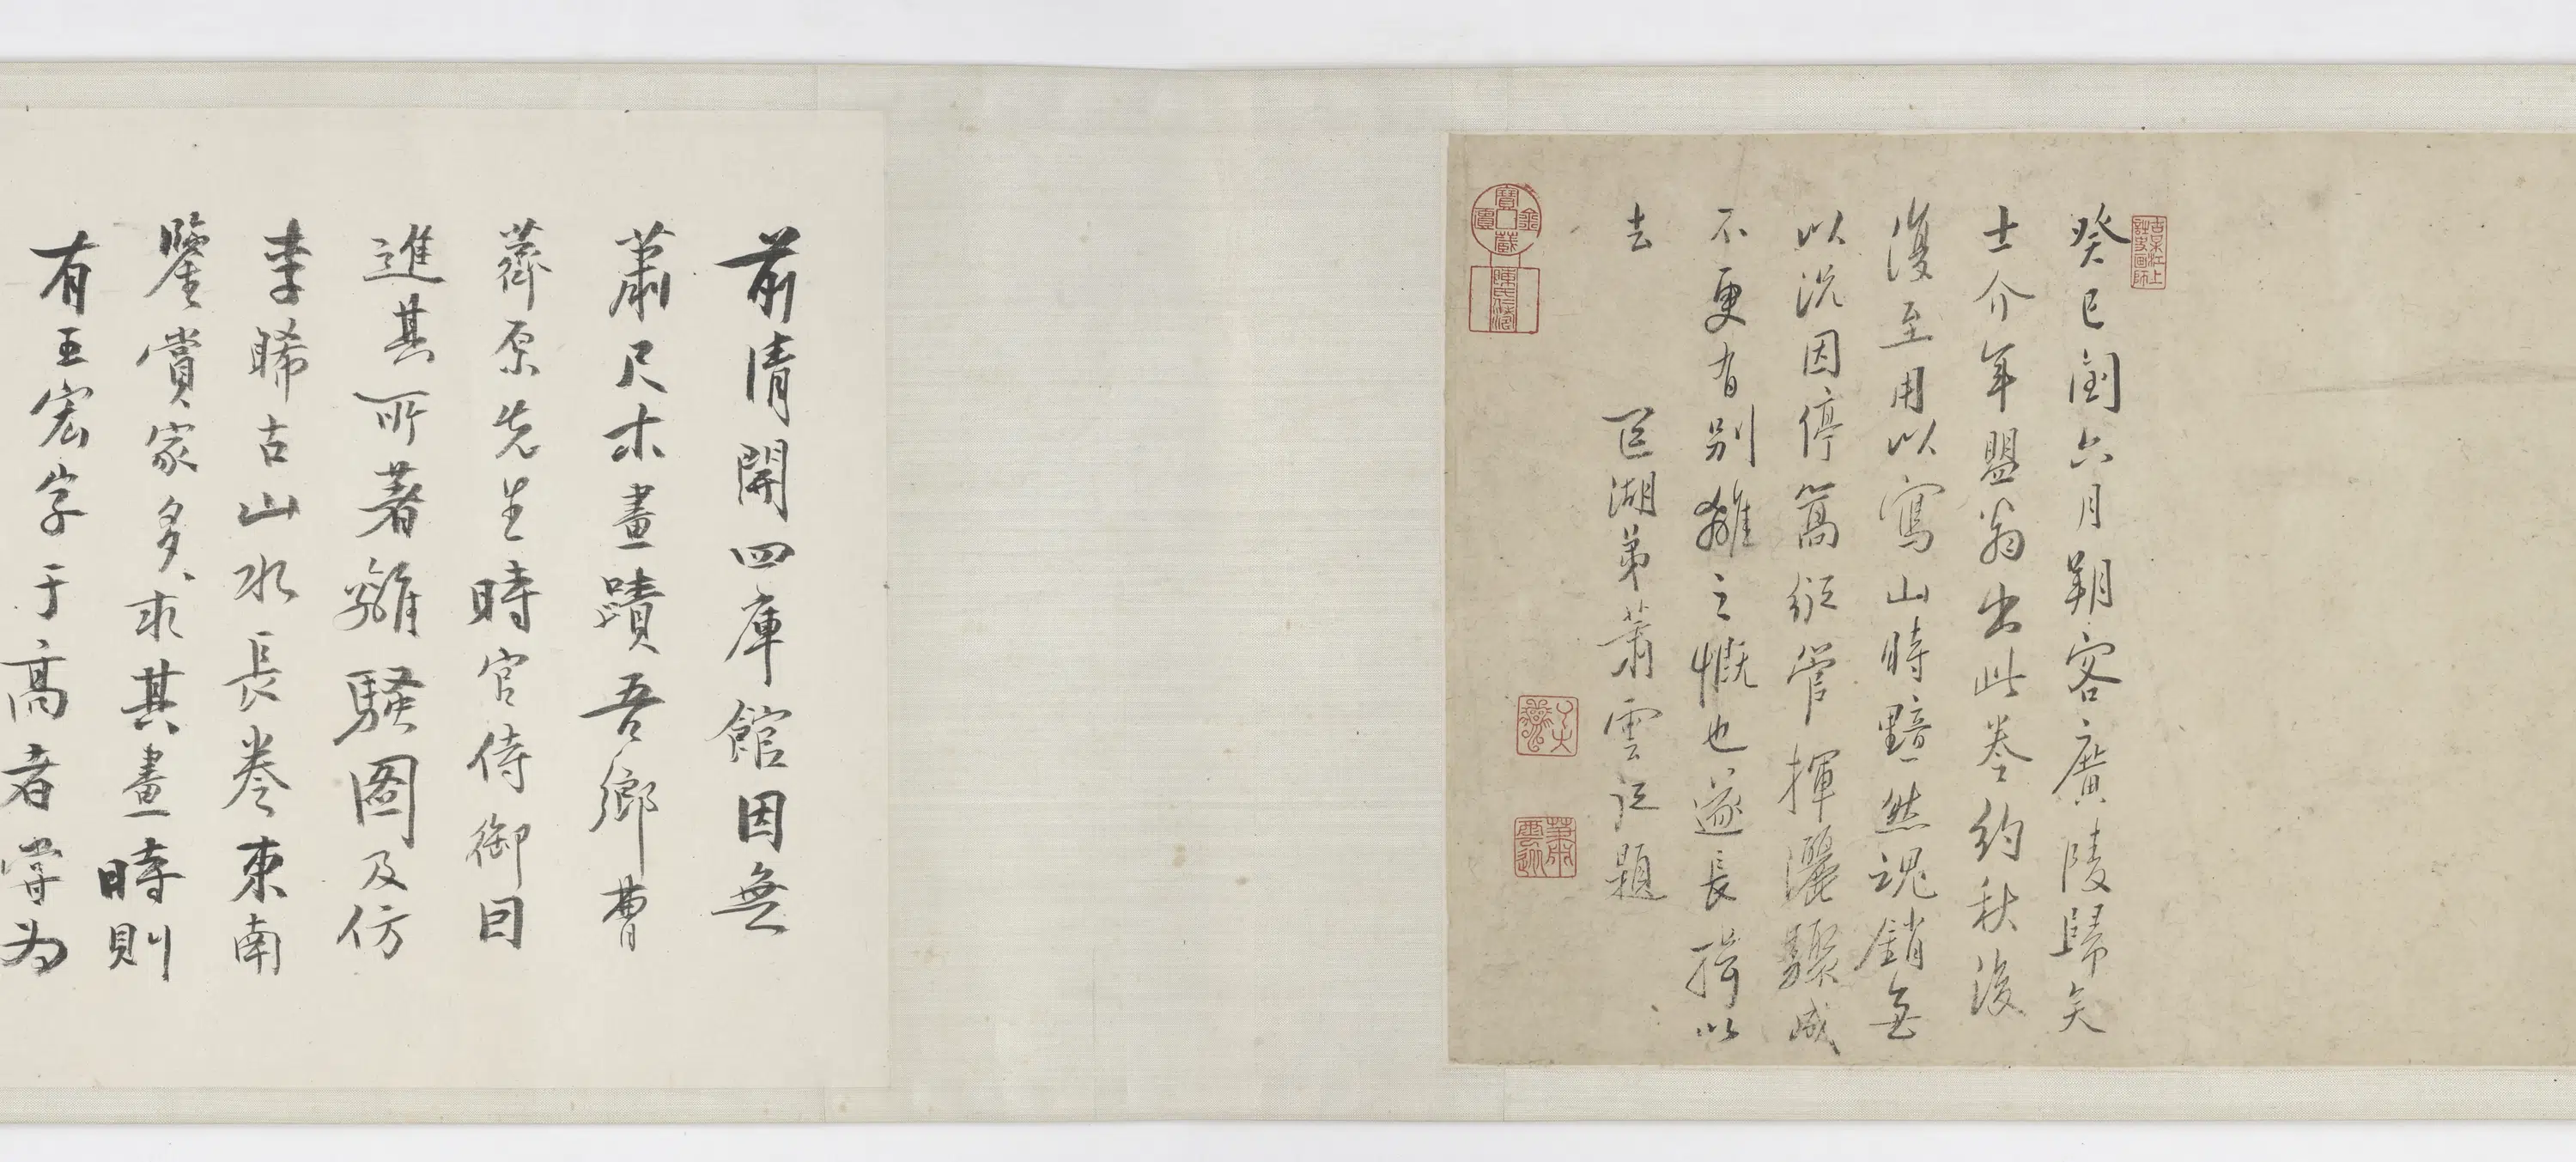 癸巳閏六月朔客廣陵歸矣
士介年盟翁出此卷約秋後
復至用以寫山時黯然魂銷無
以況因停篙從管揮灑驟成
不更有別離之慨也遂長揖以
去
區湖弟蕭雲從題
蕭雲從
前清開四庫館因無
蕭尺木畫蹟吾鄉曹
薺原先生時官侍御曰
進其所著離騷圖及仿
李晞古山水長卷東南
鑒賞家多求其畫時則
有王宏字于高者嘗為